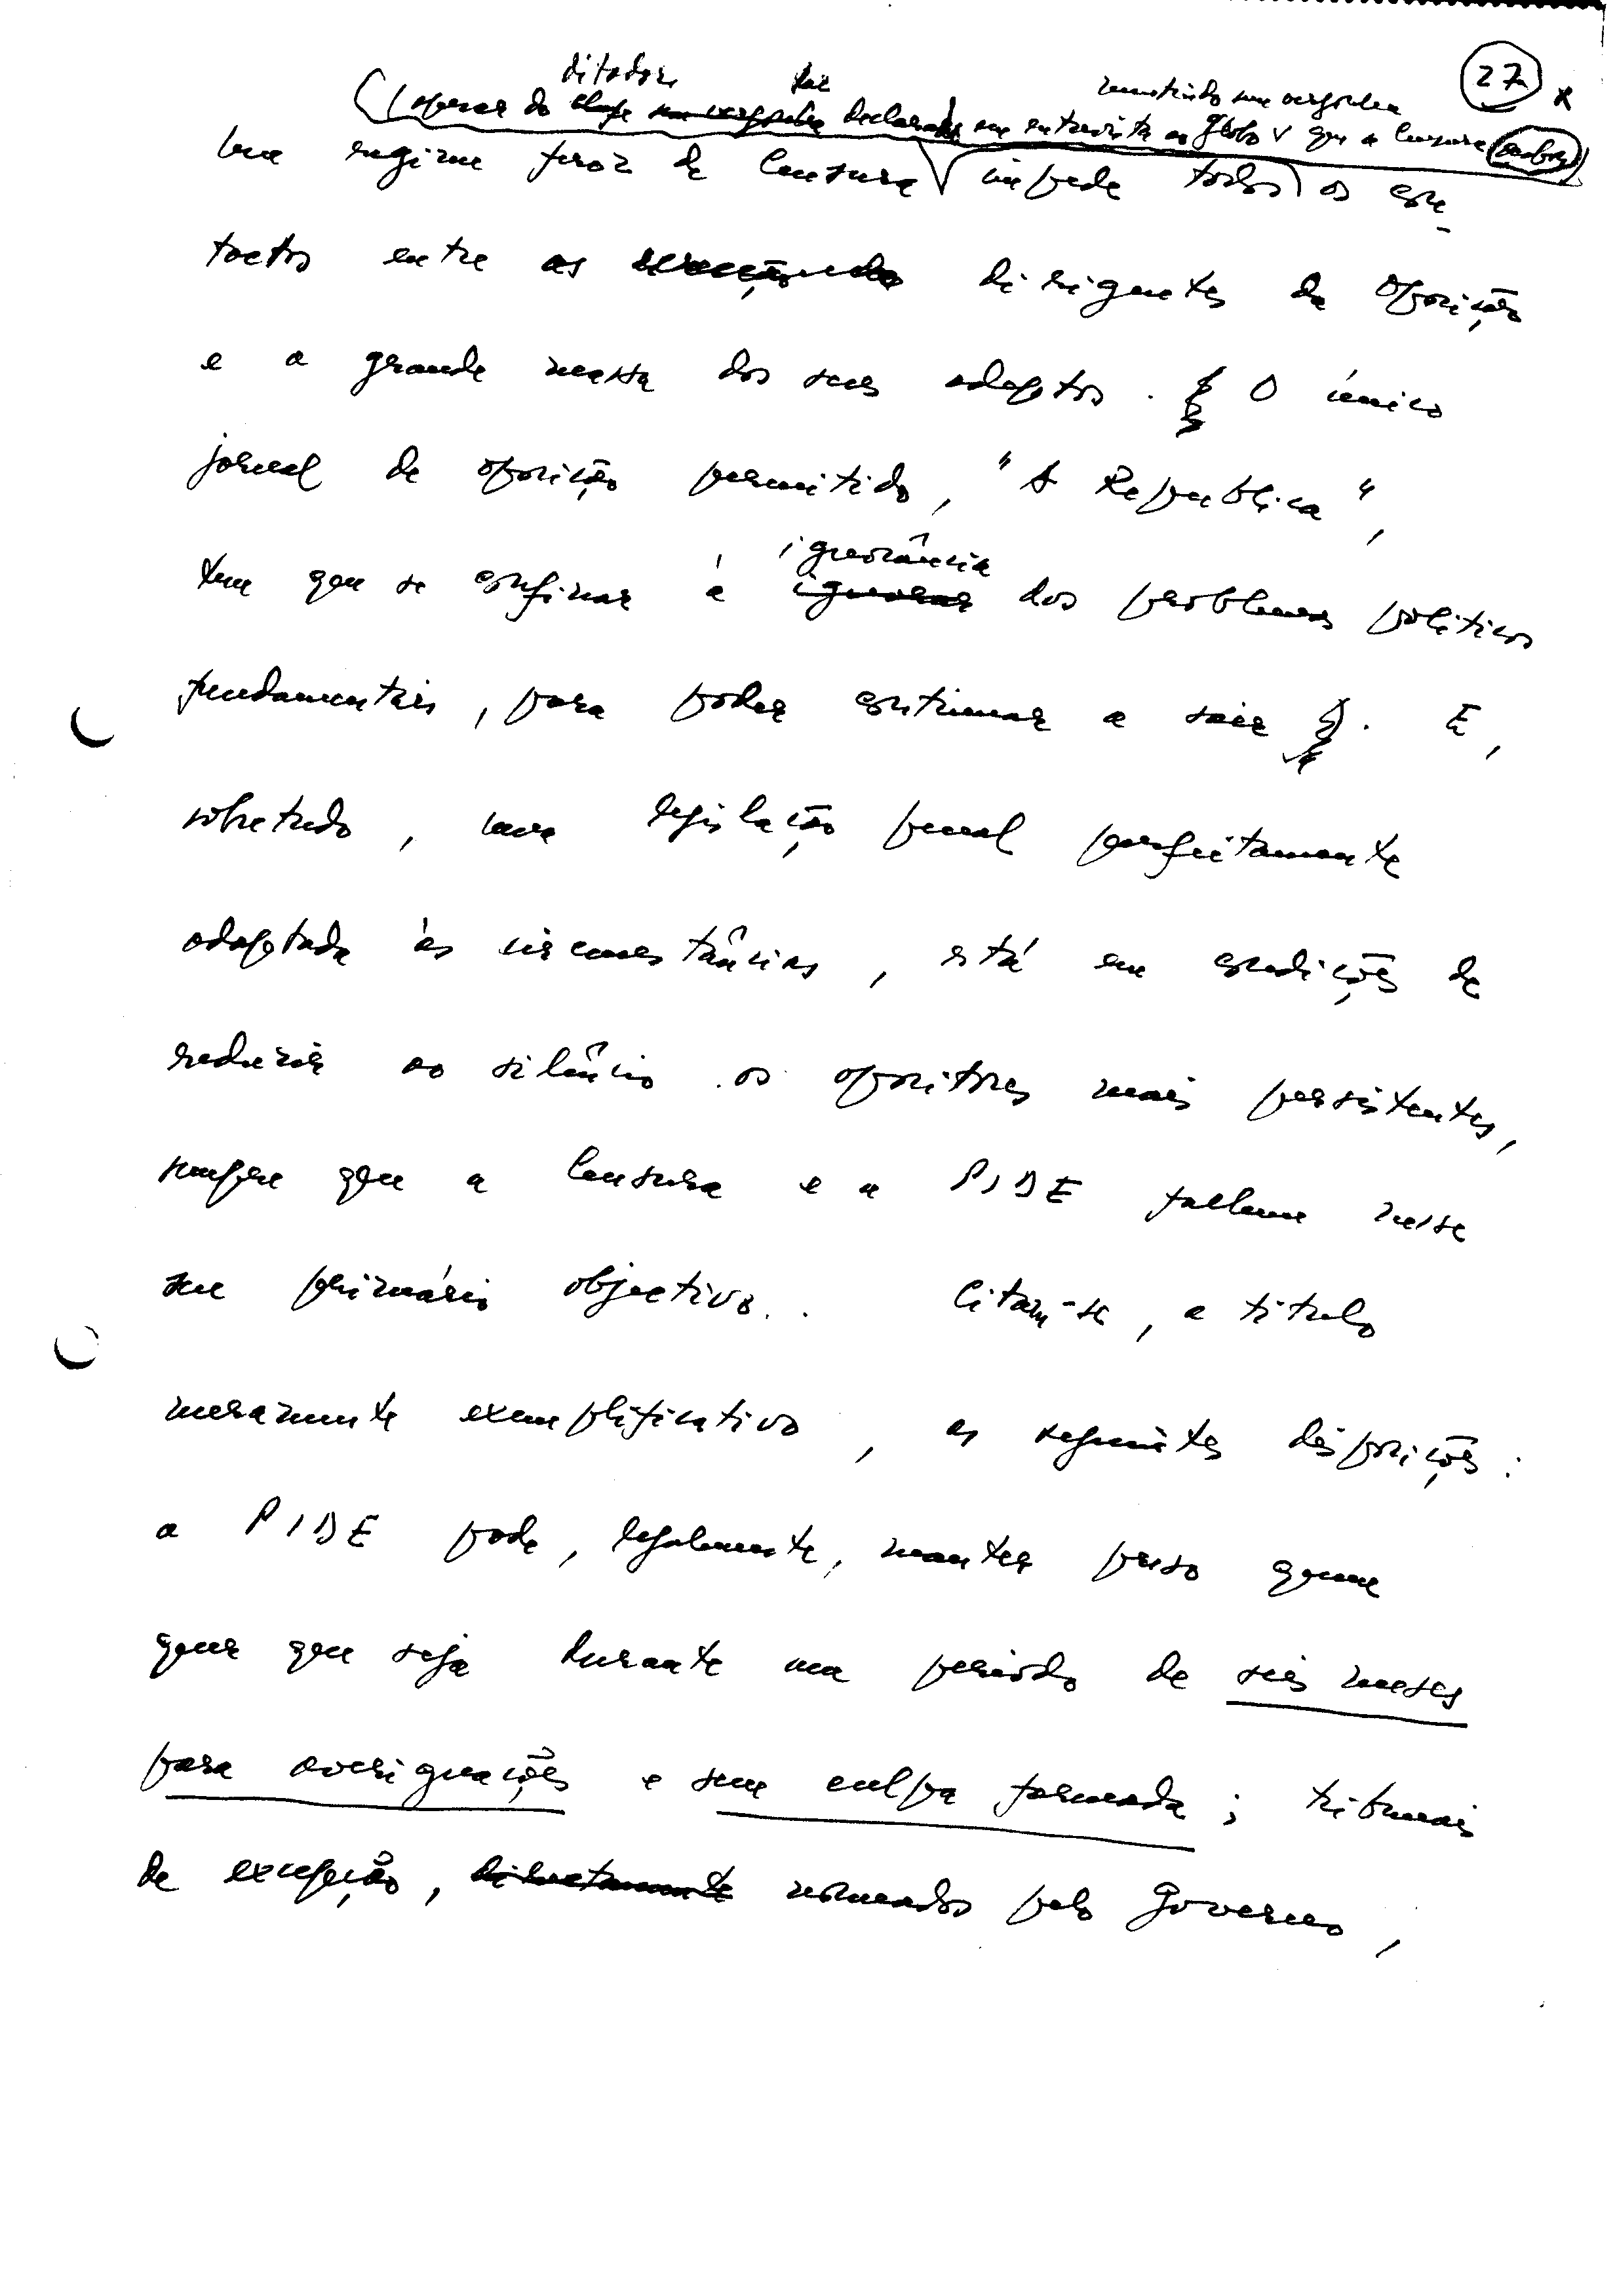 27
ditador
mentindo sem vergonha
(apesar do declarar em entrevista ao Globo que a Censura acabou)
Um regime feroz de Censura impede todos os con-
tactos entre os dirigentes da oposição
e a grande massa dos seus adeptos. O único
jornal de oposição permitido, "A Republica",
ignorância
tem que se confinar à ignorar dos problemas politicos
fundamentais, para poder continuar a sair. E,
sobretudo, uma legislação penal perfeitamente
adaptada às circunstâncias, está em condições de
reduzir ao silêncio os opositores mais persistentes,
sempre que a Censura e a PIDE falham nesse
seu primário objectivo. Citam-se, a titulo
meramente exemplificativo, as seguintes disposições:
a PIDE pode, legalmente, manter preso quem
quer que seja durante um periodo de seis meses
para averiguações e sem culpa formada; tribunais
de excepção, directamente nomeados pelo Governo,